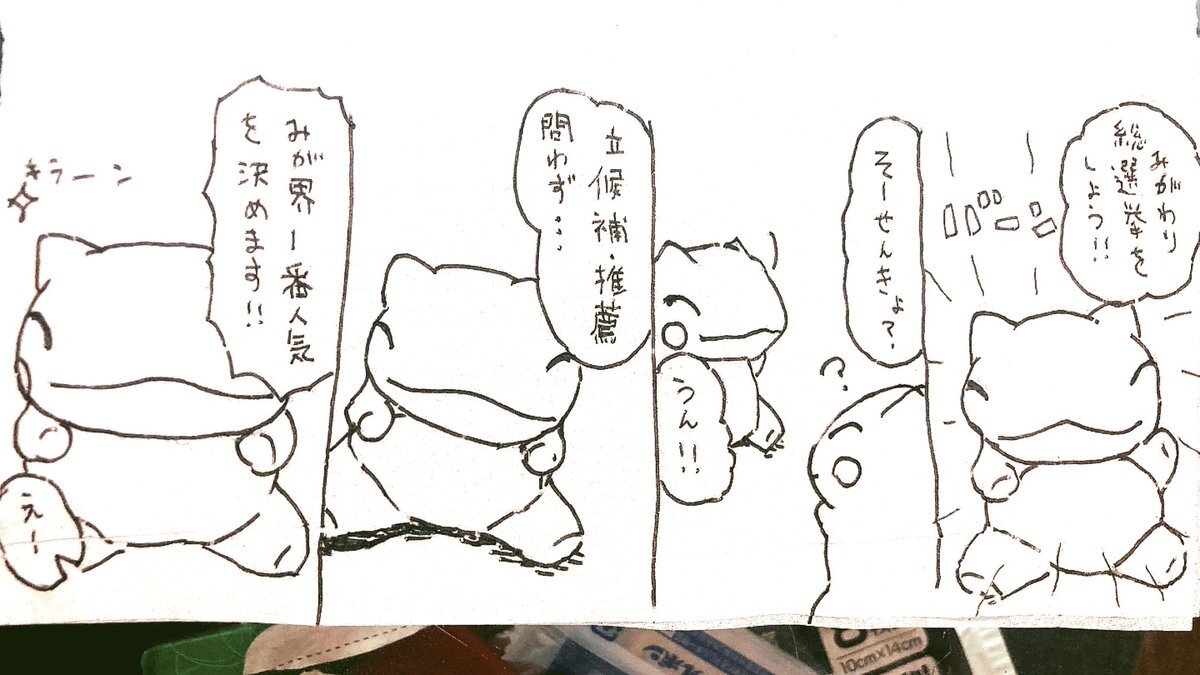 みがわり
総選挙を
しよう!!
バーン
そーせんきょ?
?
うん!!
立候補・推薦
問わず…
みが界一番人気
を決めます!!
キラーン
えー
10cm×14cm